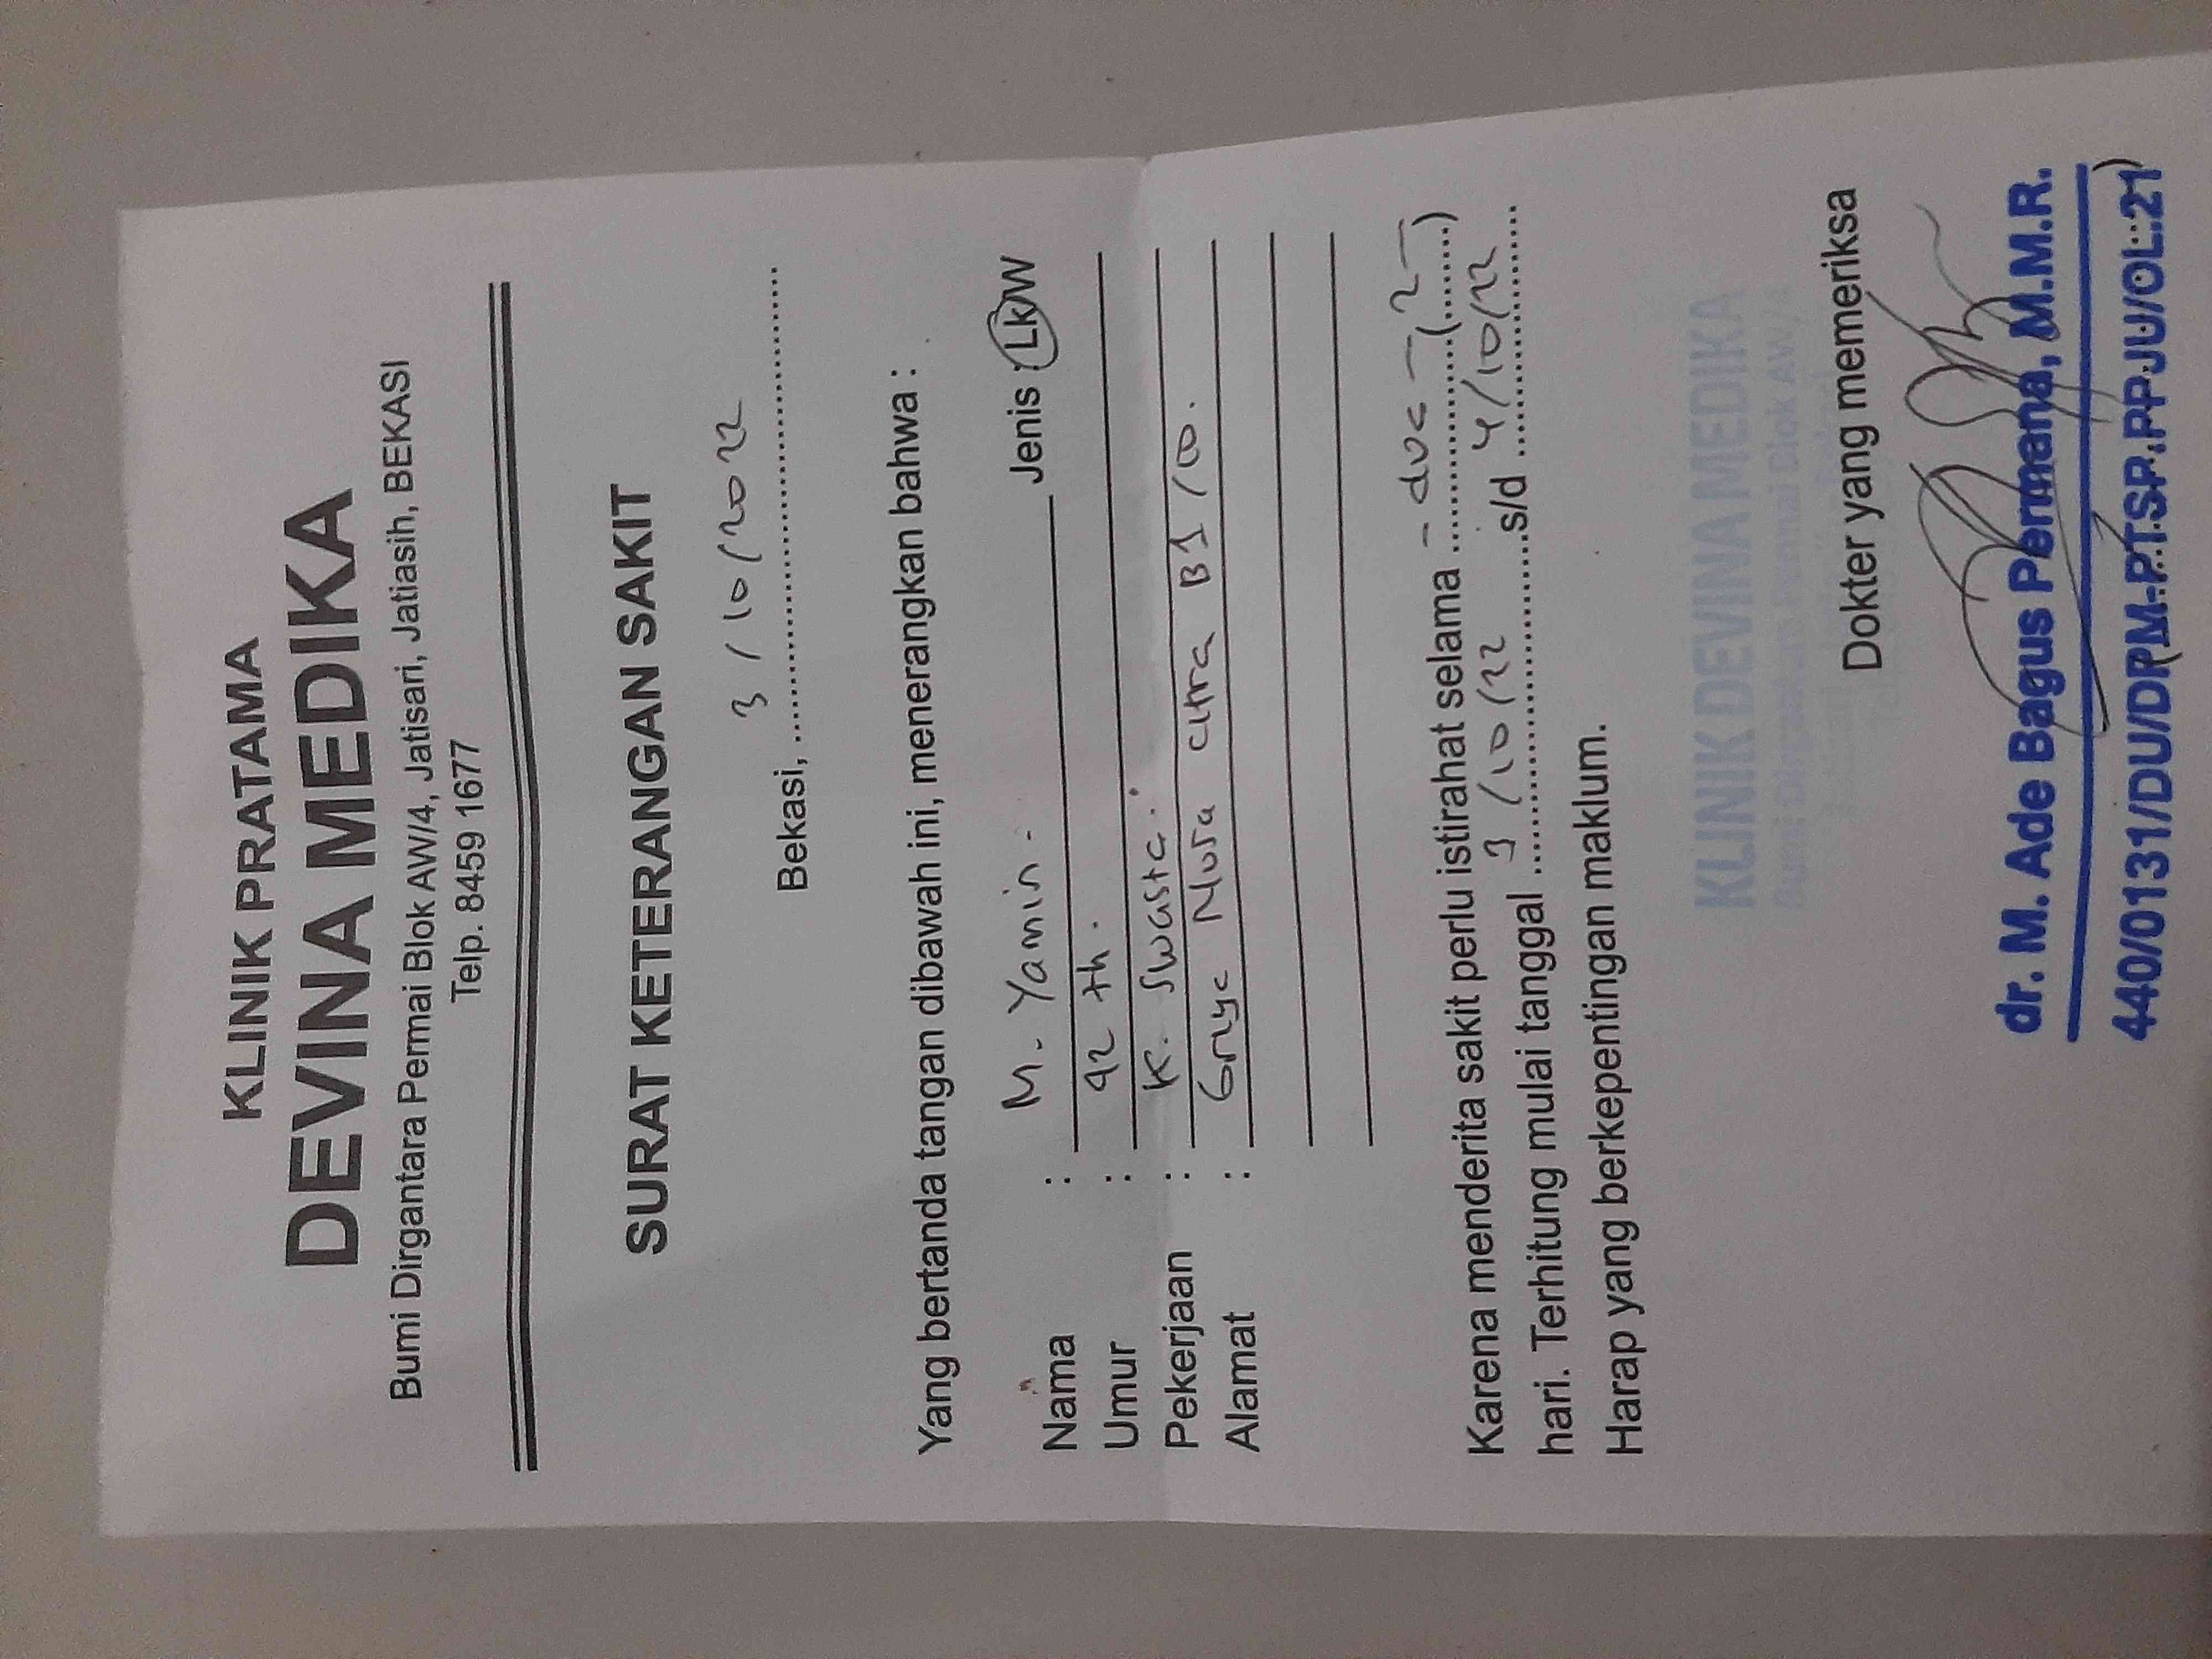 KLINIK PRATAMA
DEVINA MEDIKA
Bumi Dirgantara Permai Blok AW/4, Jatisari, Jatiasih, BEKASI
Telp. 8459 1677
SURAT KETERANGAN SAKIT
Bekasi, 3/10/2022
Yang bertanda tangan dibawah ini, menerangkan bahwa :
Nama : M. Yamin. Jenis : Lk/W
Umur : 42 th.
Pekerjaan : K. Swasta.
Alamat : Nusa Citra B1/
Karena menderita sakit perlu istirahat selama - dua - (2-)
hari. Terhitung mulai tanggal 3/10/22 s/d 4/10/22
Harap yang berkepentingan maklum.
KLINIK DEVINA MEDIKA
Bumi Dirgantara Permai Blok AW/4
Dokter yang memeriksa
dr. M. Ade Bagus Permana, M.M.R.
440/0131/DU/DPM-PTSP.PPJU/OL.21